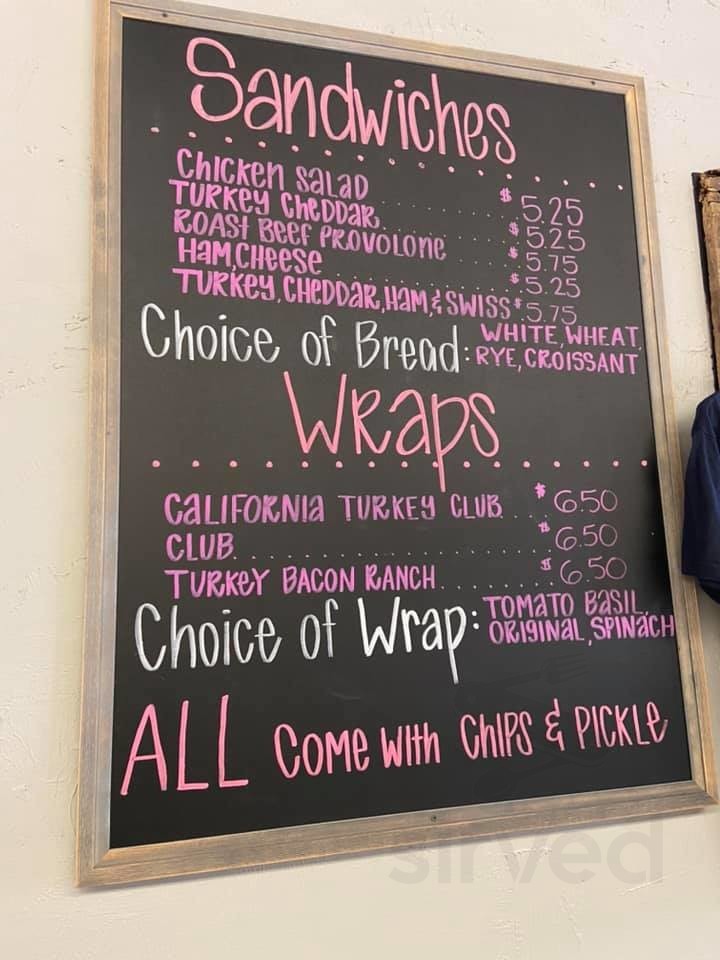 Sandwiches
CHICKEN SALAD $5.25
TURKEY CHEDDAR $5.25
ROAST BEEF PROVOLONE $5.75
HAM, CHEESE $5.25
TURKEY, CHEDDAR, HAM, & SWISS $5.75
Choice of Bread: WHITE, WHEAT,
RYE, CROISSANT
WRaps
CALIFORNIA TURKEY CLUB $6.50
CLUB $6.50
TURKEY BACON RANCH $6.50
Choice of Wrap: TOMATO BASIL,
ORIGINAL, SPINACH
ALL COME WITH CHIPS & PICKLE
sirved